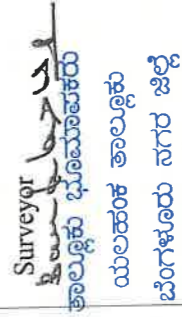 Surveyor
ತಾಲ್ಲೂಕು ಭೂಮಾಪಕರು
ಯಲಹಂಕ ತಾಲ್ಲೂಕು
ಬೆಂಗಳೂರು ನಗರ ಜಿಲ್ಲೆ